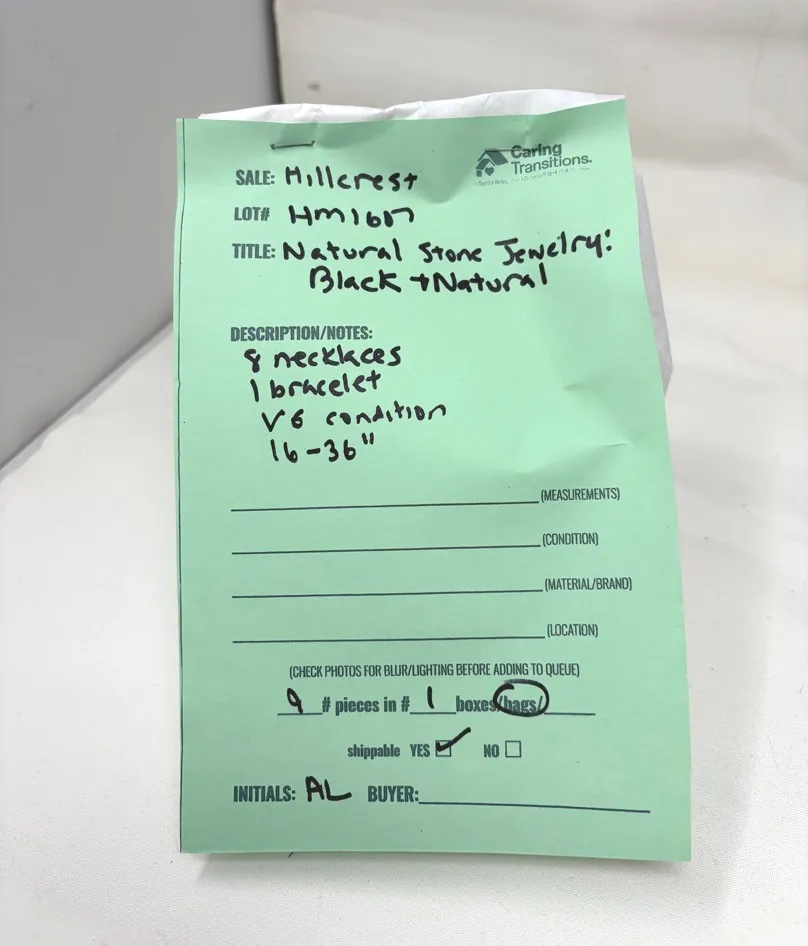 Caring
Transitions.
SALE: Hillcrest
LOT#
TITLE: Natural Stone Jewelry:
Black + Natural
DESCRIPTION/NOTES:
8 necklaces
1 bracelet
VG condition
16-36"
(MEASUREMENTS)
(CONDITION)
(MATERIAL/BRAND)
(LOCATION)
(CHECK PHOTOS FOR BLUR/LIGHTING BEFORE ADDING TO QUEUE)
9 # pieces in # 1 boxes/bags/
shippable YES NO
INITIALS: AL BUYER: